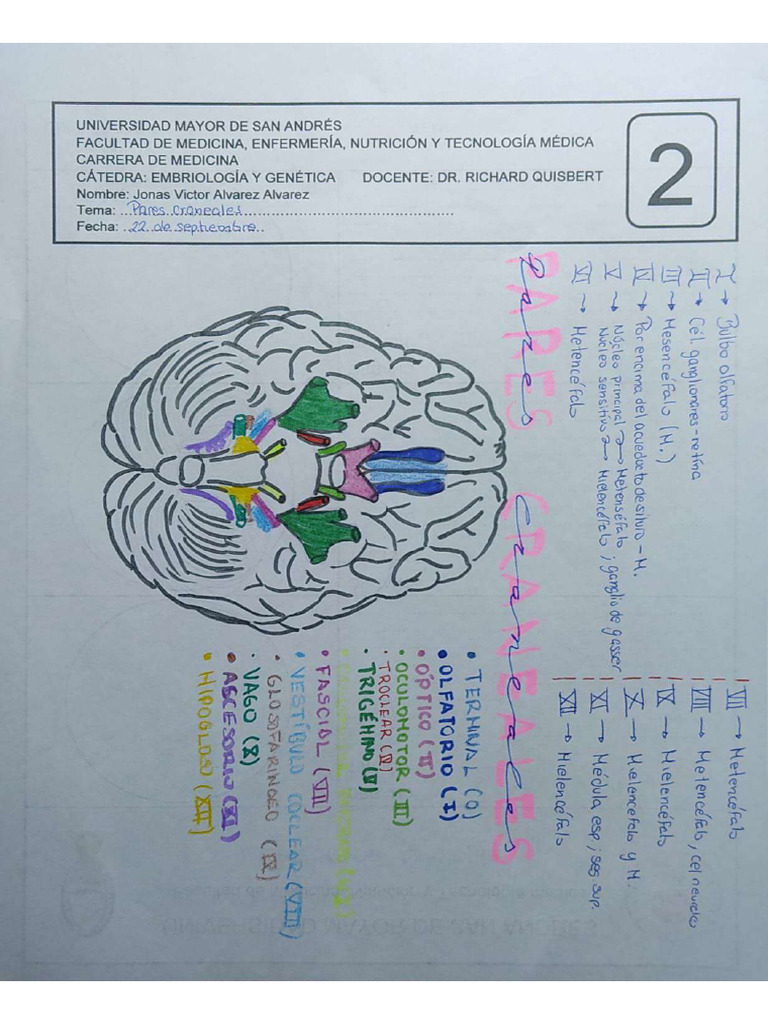 UNIVERSIDAD MAYOR DE SAN ANDRÉS
FACULTAD DE MEDICINA, ENFERMERÍA, NUTRICIÓN Y TECNOLOGÍA MÉDICA
CARRERA DE MEDICINA
CÁTEDRA: EMBRIOLOGÍA Y GENÉTICA DOCENTE: DR. RICHARD QUISBERT
Nombre: Jonas Victor Alvarez Alvarez
Tema: Pares Craneales
Fecha: 22 de septiembre
2
I → Bulbo olfatorio
II → Cél. ganglionares - retina
III → Mesencéfalo (M.)
IV → Por encima del acueducto de silvio - M.
V → Núcleo principal → Metenséfalo
Núcleo sensitivo → Mielencéfalo ; ganglio de gasser
VI → Metencéfalo
VII → Metencéfalo
VIII → Metencéfalo, cel neurales
IX → Mielencéfalo
X → Mielencefalo y M.
XI → Médula esp ; seg sup.
XII → Mielencéfalo
PARES CRANEALES
Pares craneales
• TERMINAL (0)
• OLFATORIO (I)
• OPTICO (II)
• OCULOMOTOR (III)
• TROCLEAR (IV)
• TRIGÉMINO (V)
• FASCIAL (VII)
• VESTÍBULO COCLEAR (VIII)
• GLOSOFARINGEO (IX)
• VAGO (X)
• ASCESORIO (XI)
• HIPOGLOSO (XII)